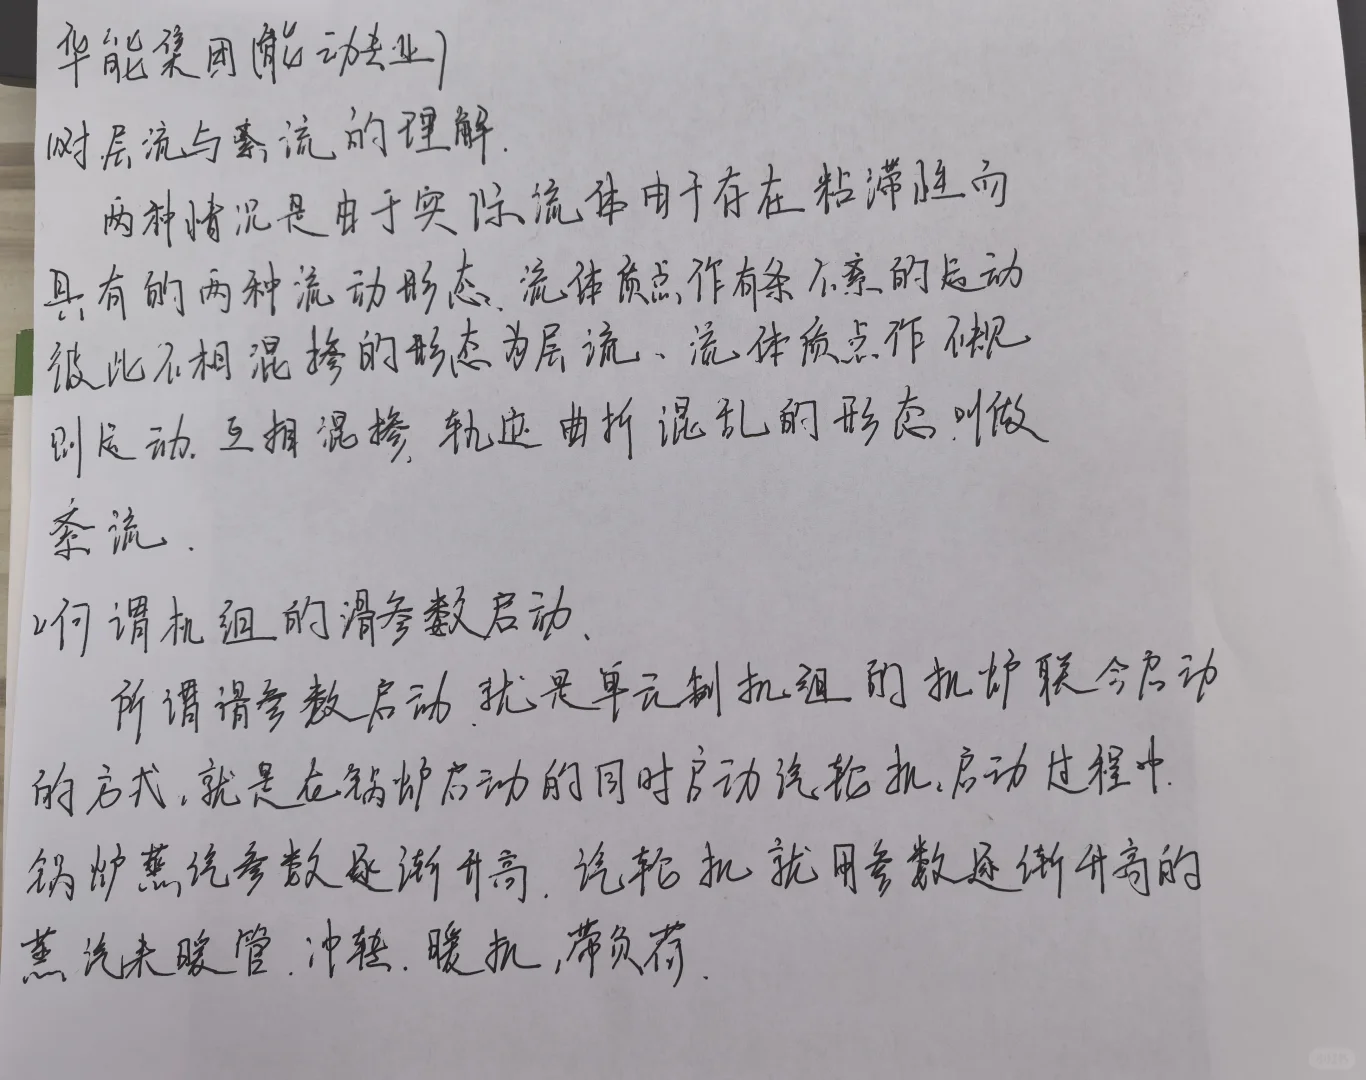 华能集团(能动专业)
1对层流与紊流的理解.
两种情况是由于实际流体由于存在粘滞性而
具有的两种流动形态、流体质点作有条不紊的运动
彼此不相混掺的形态为层流、流体质点作不规
则运动、互相混掺、轨迹曲折混乱的形态叫做
紊流.
2何谓机组的滑参数启动、
所谓滑参数启动、就是单元制机组的机炉联合启动
的方式,就是在锅炉启动的同时启动汽轮机,启动过程中.
锅炉蒸汽参数逐渐升高.汽轮机就用参数逐渐升高的
蒸汽来暖管.冲转.暖机,带负荷.